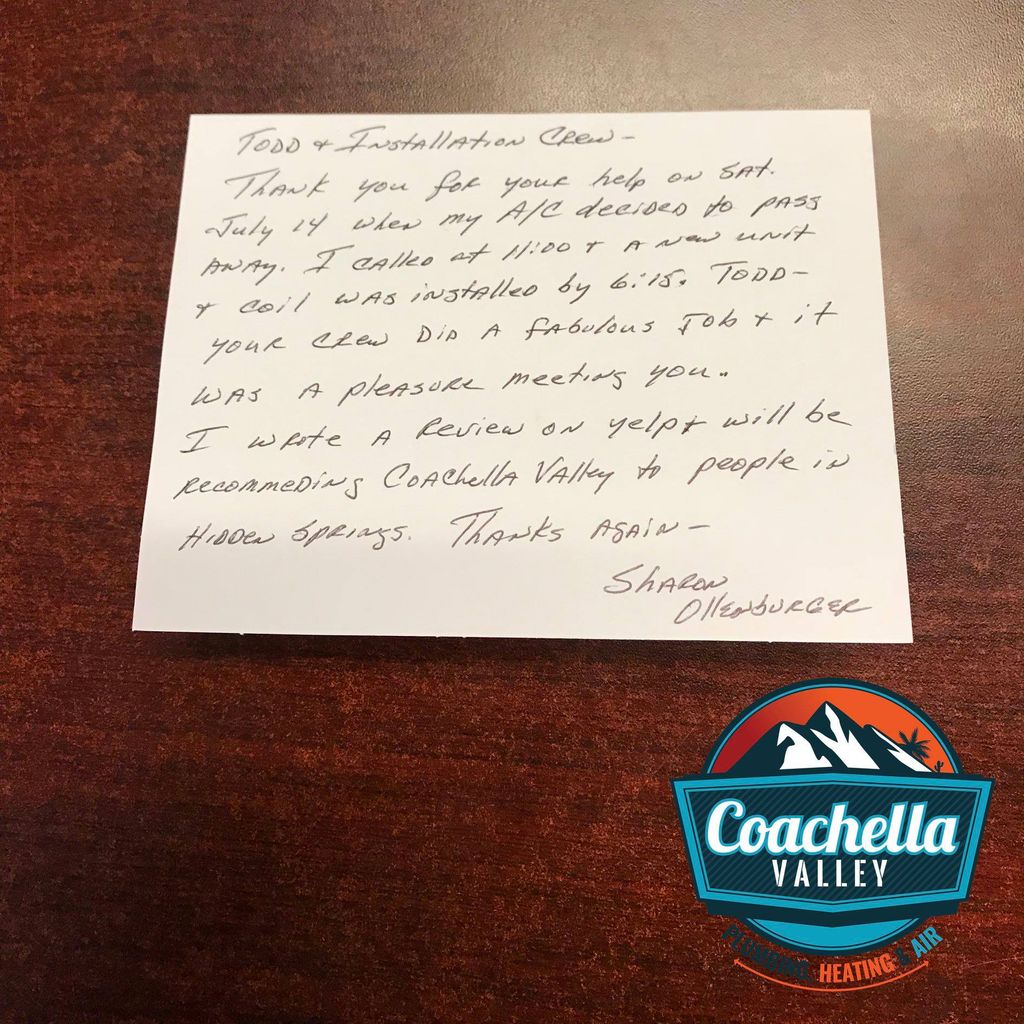 Todd & Installation Crew -
Thank you for your help on Sat.
July 14 when my A/C decided to pass
away. I called at 11:00 & a new unit
& coil was installed by 6:15. Todd -
your crew did a fabulous job & it
was a pleasure meeting you..
I wrote a review on yelp & will be
recommeding Coachella Valley to people in
Hidden Springs. Thanks again -
Sharon
Ollenburger
Coachella
VALLEY
PLUMBING, HEATING & AIR